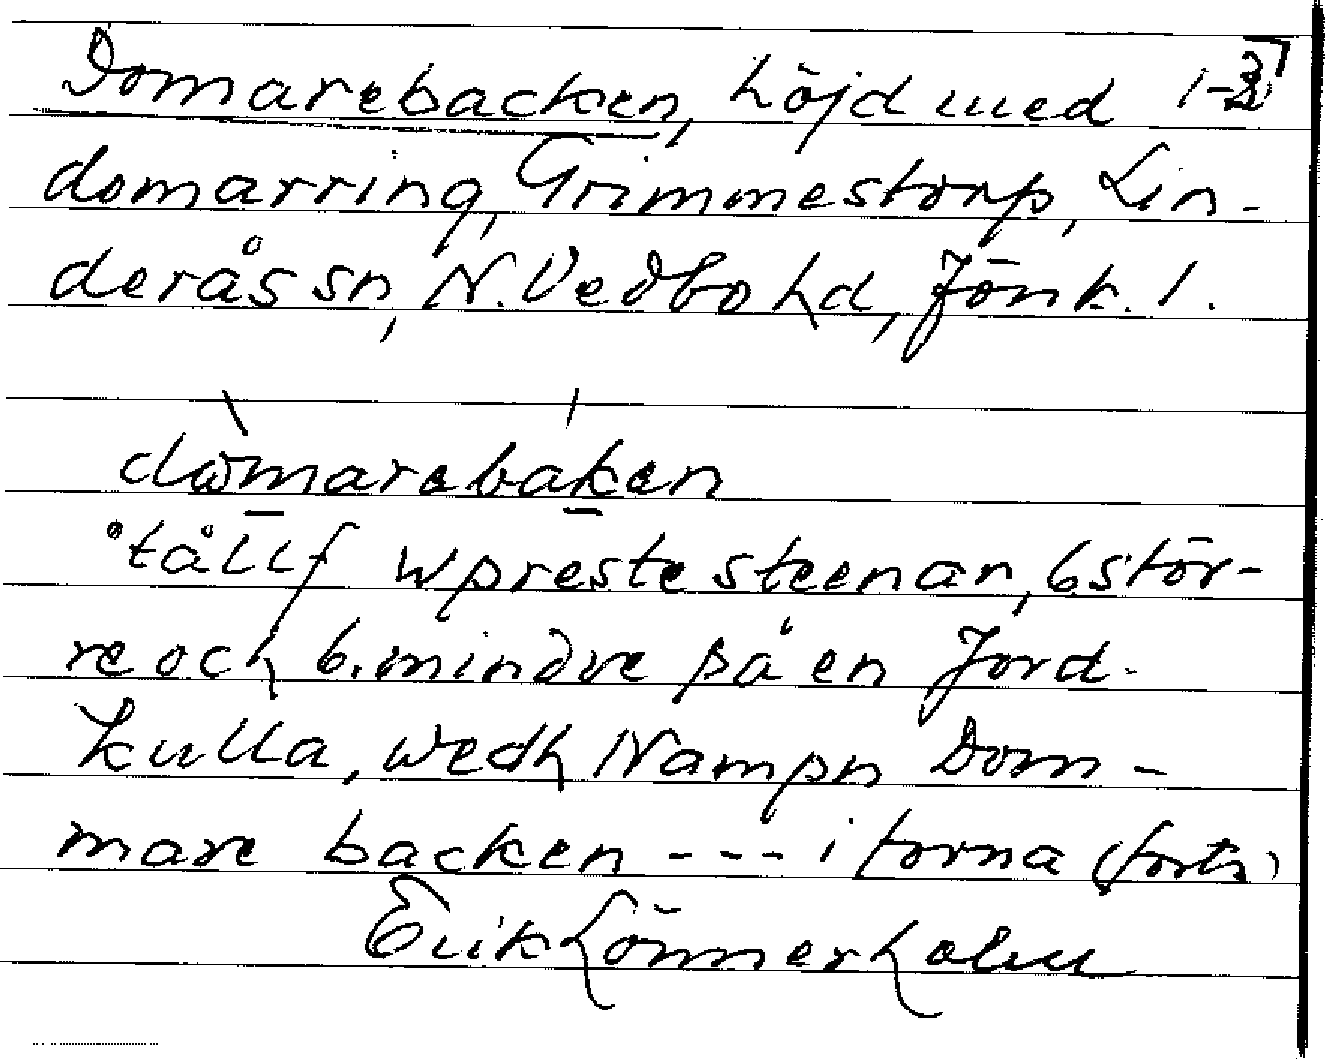 Domarebacken, höjd med 1-3
domarring, Grimmestorp, Lin-
derås sn, N. Vedbo hd, Jönk. l.
dòmarebáken
"tållf wpreste steenar, 6 stör-
re och 6. mindre på en Jord-
kulla, wedh Nampn Dom-
mare backen --- i forna (forts)
Erik Lönnerholm